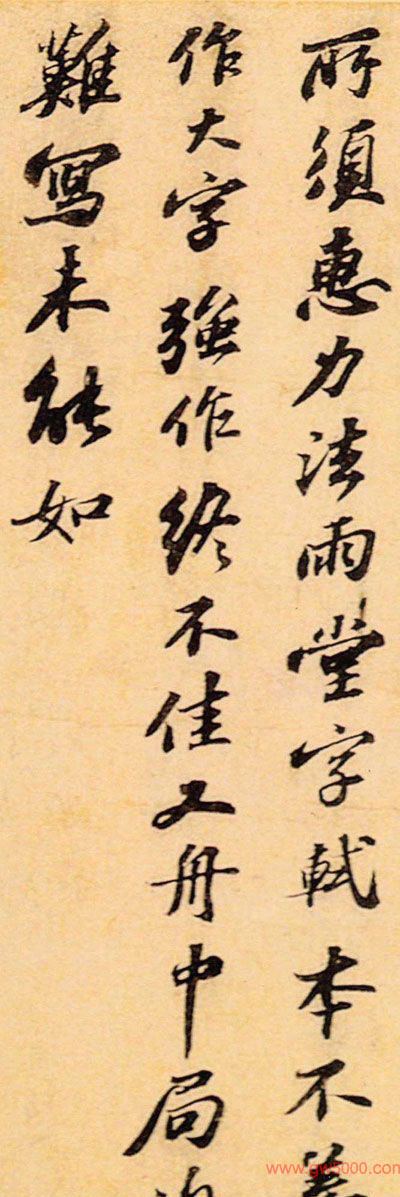 所須惠力法雨堂字軾本不善
作大字強作終不佳又舟中局
難寫未能如
www.gw5000.com